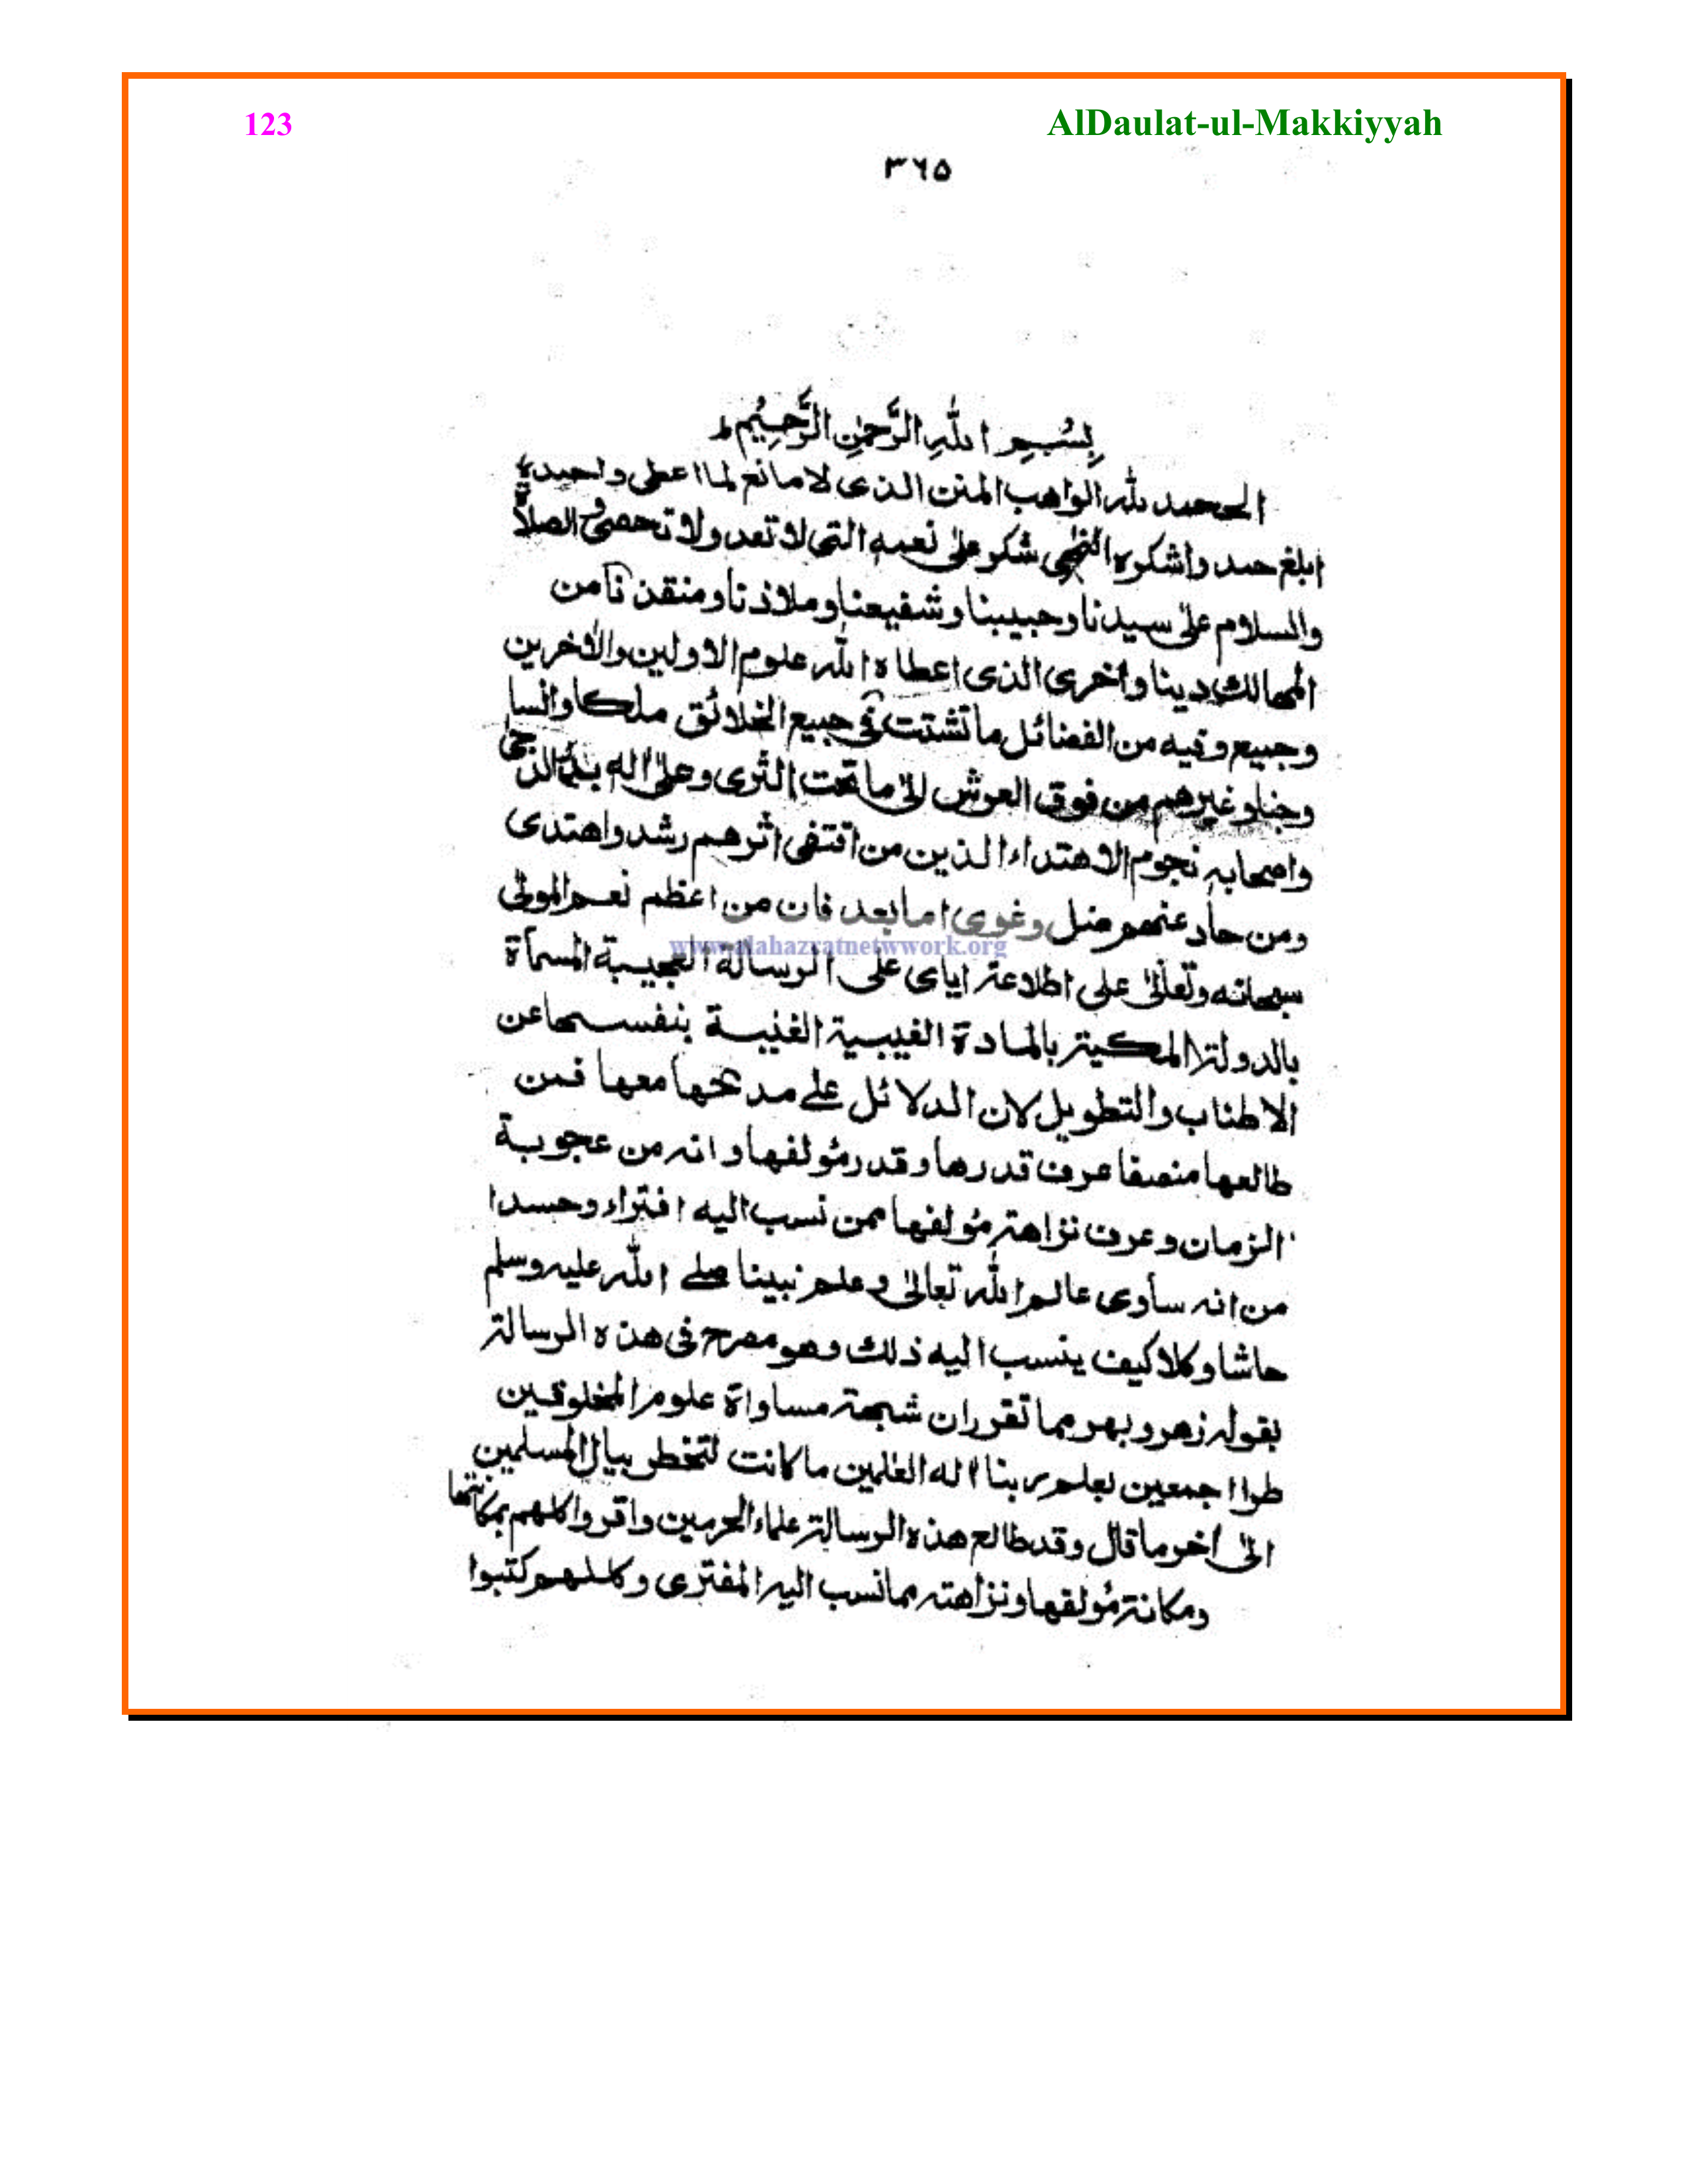 123 AlDaulat-ul-Makkiyyah
٣٦٥
بِسْمِ اللهِ الرَّحْمٰنِ الرَّحِيْمِ ط
الحمد لله الواهب المنن الذى لا مانع لما اعطى واحمده
ابلغ حمد واشكره شكر على نعمه التى لا تعد ولا تحصى و الصلاة
والسلام على سيدنا وحبيبنا وشفيعنا وملاذنا ومنقذنا من
المهالك دينا واخرى الذى اعطاه الله علوم الاولين والاخرين
وجميع وفيه من الفضائل ما تشتت فى جميع الخلائق ملكا وانسا
وجنا وغيرهم من فوق العرش الى ما تحت الثرى وعلى اله بدر الدجى
واصحابه نجوم الاهتداء الذين من اقتفى اثرهم رشد واهتدى
ومن حاد عنهم ضل وغوى اما بعد فان من اعظم نعم المولى
www.alahazratnetwwork.org
سبحانه وتعالى على اطلاعه اياى على الرسالة العجيبة المسماة
بالدولة المكية بالمادة الغيبية الغنية بنفسها عن
الاطناب والتطويل لان الدلائل على مدحها معها فمن
طالعها منصفا عرف قدرها وقدر مؤلفها وانه من عجوبة
الزمان وعرف نزاهة مؤلفها ممن نسب اليه افتراء وحسدا
من انه ساوى عالم الله تعالى وعلم نبينا صلے الله عليه وسلم
حاشا وكلا كيف ينسب اليه ذلك وهو مصرح فى هذه الرسالة
بقوله زهر وبهر مما تقرر ان شبهة مساواة علوم المخلوقين
طرا اجمعين بعلم ربنا اله العٰلمين ما كانت لتخطر ببال المسلمين
الى اخر ما قال وقد طالع هذه الرسالة علماء الحرمين واقروا كلهم بمكانتها
ومكانة مؤلفها ونزاهته مما نسب اليه المفترى وكلهم كتبوا